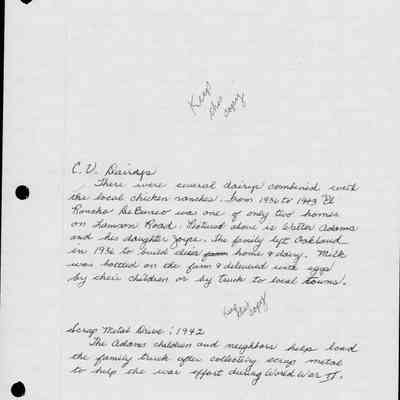 Keep
this
copy
C. V. Dairys
There were several dairys combined with
the local chicken ranches. From 1936 to 1943 "El
Rancho De Bunco" was one of only two homes
on Lamson Road. Pictured above is Walter Adams
and his daughter Joyce. The family left Oakland
in 1936 to build their farm home & dairy. Milk
was bottled on the farm & delivered with eggs
by their children or by truck to local towns.
Keep
this copy
Scrap Metal Drive : 1942
The Adams children and neighbors help load
the family truck after collecting scrap metal
to help the war effort during World War II.